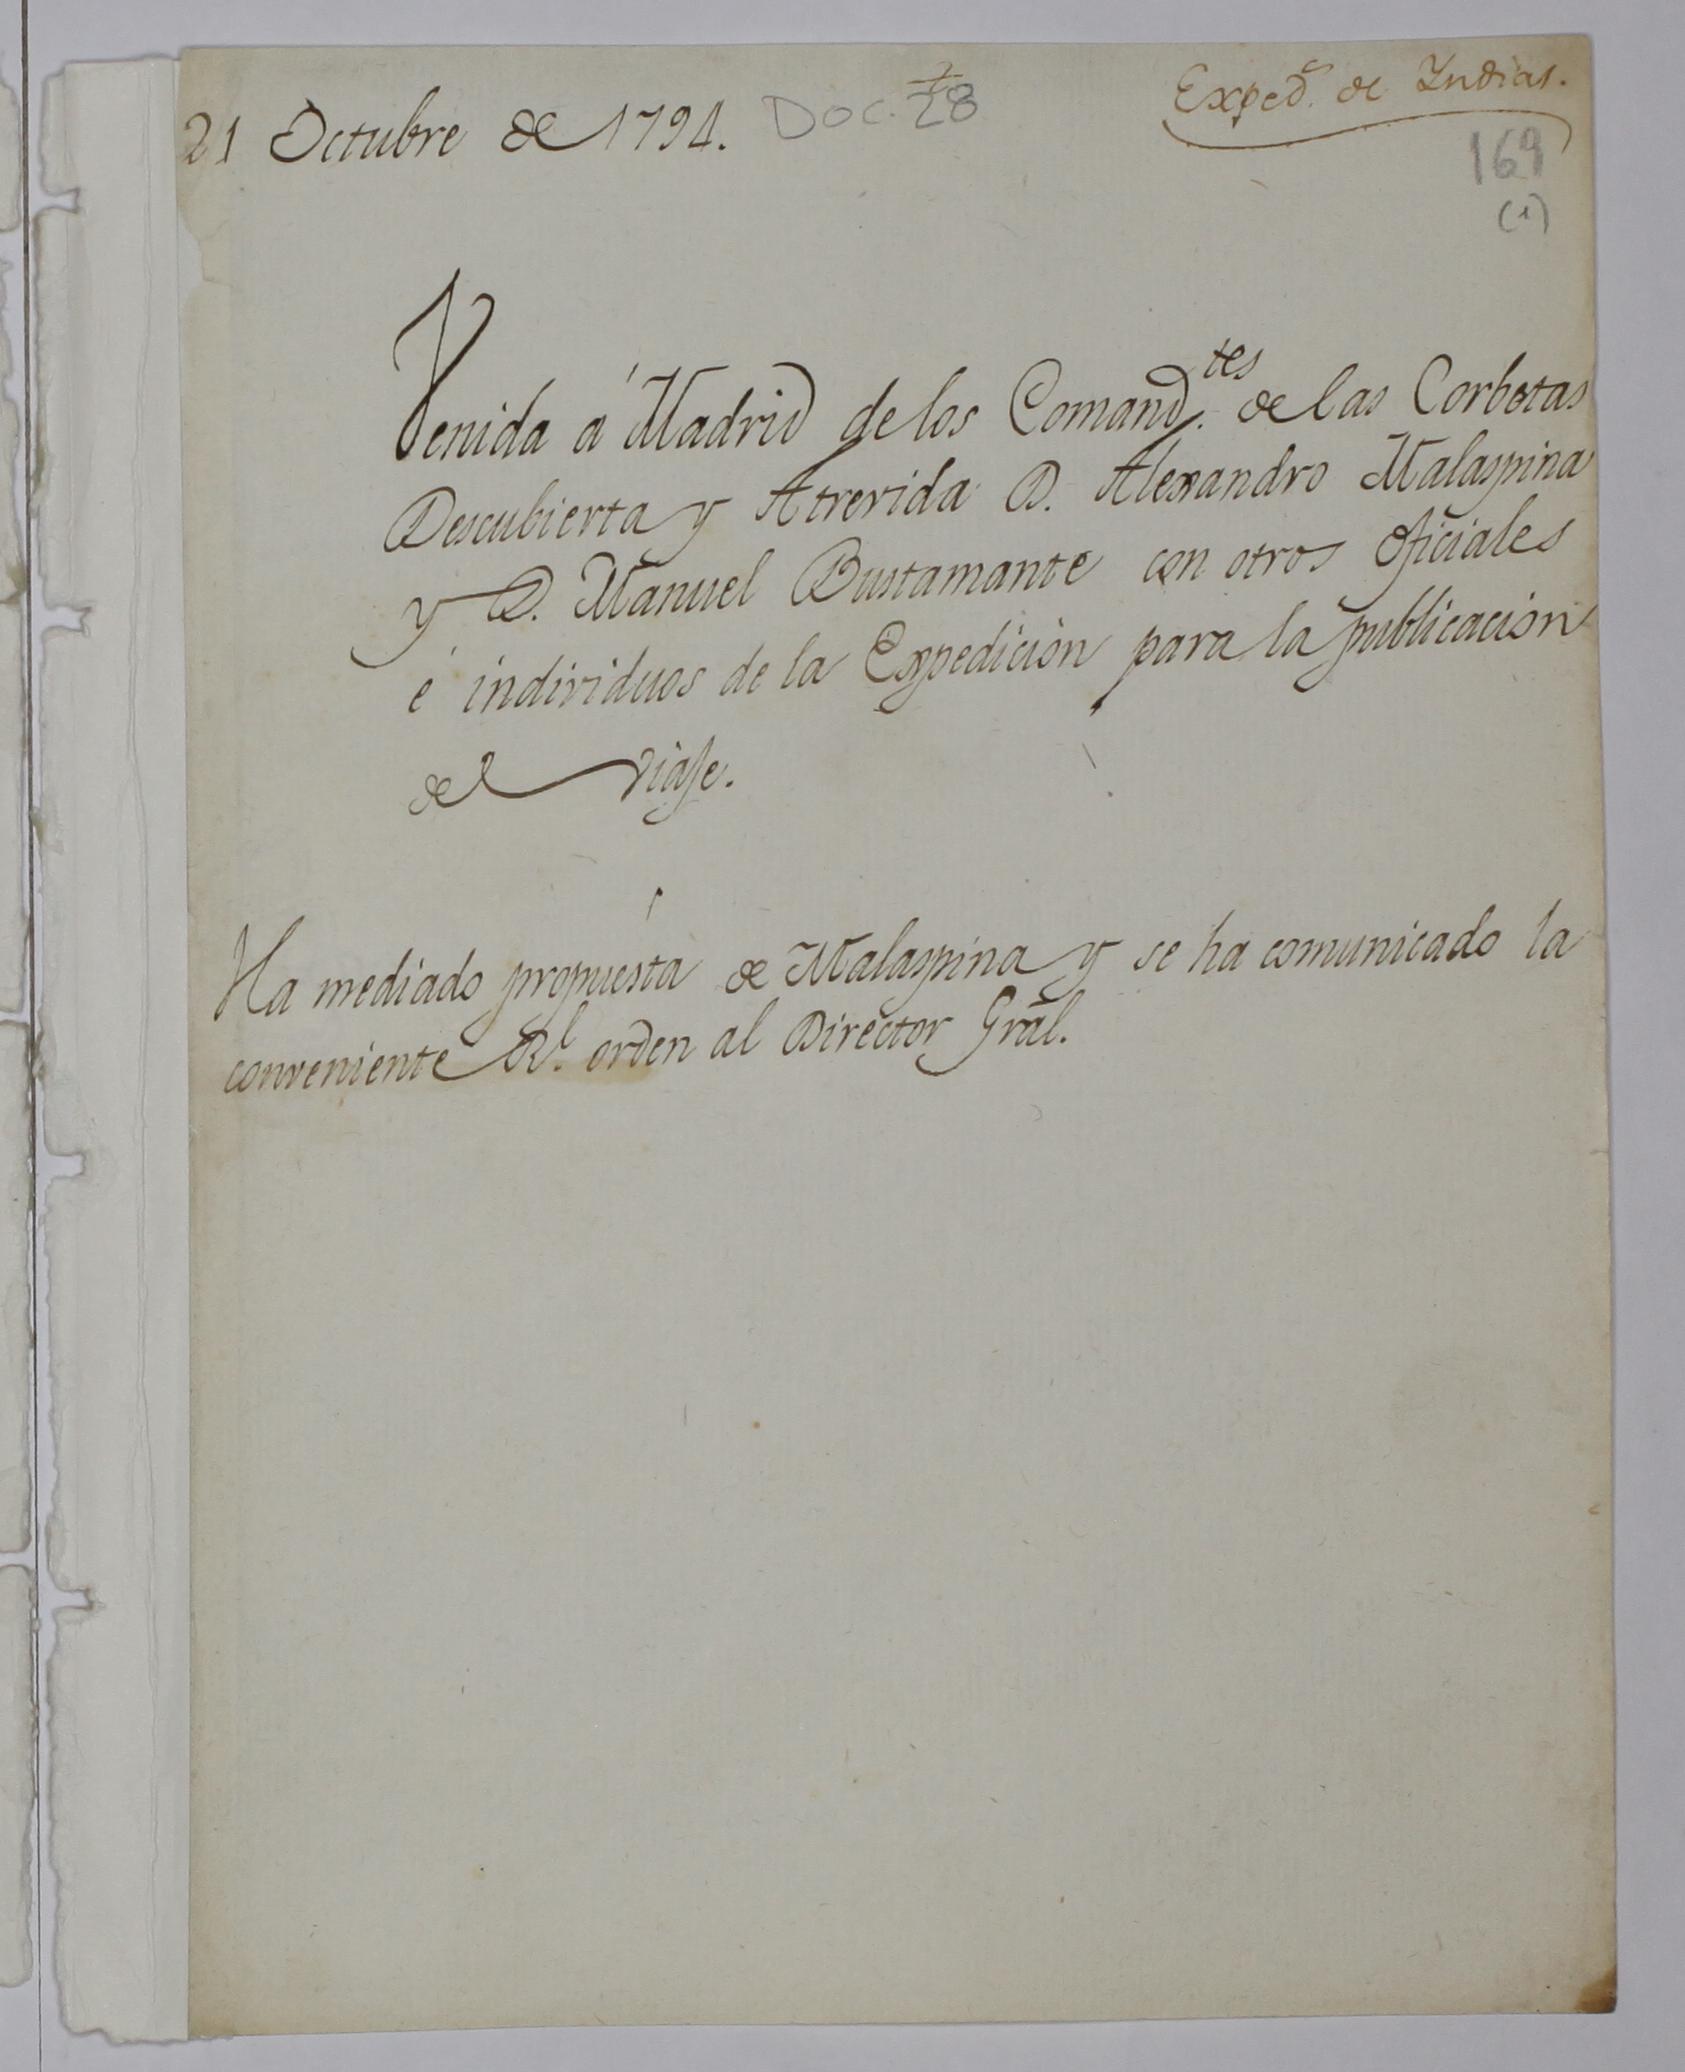 21 Octubre de 1794.
Doc. 28
Exped.s de Indias.
169
(1)
Venida á Madrid de los Comand.tes de las Corbetas
Descubierta y Atrevida D. Alexandro Malaspina
y D. Manuel Bustamante con otros oficiales
é individuos de la Expedición para la publicacion
del viaje.
Ha mediado propuesta de Malaspina y se ha comunicado la
conveniente Rl. orden al Director Gral.